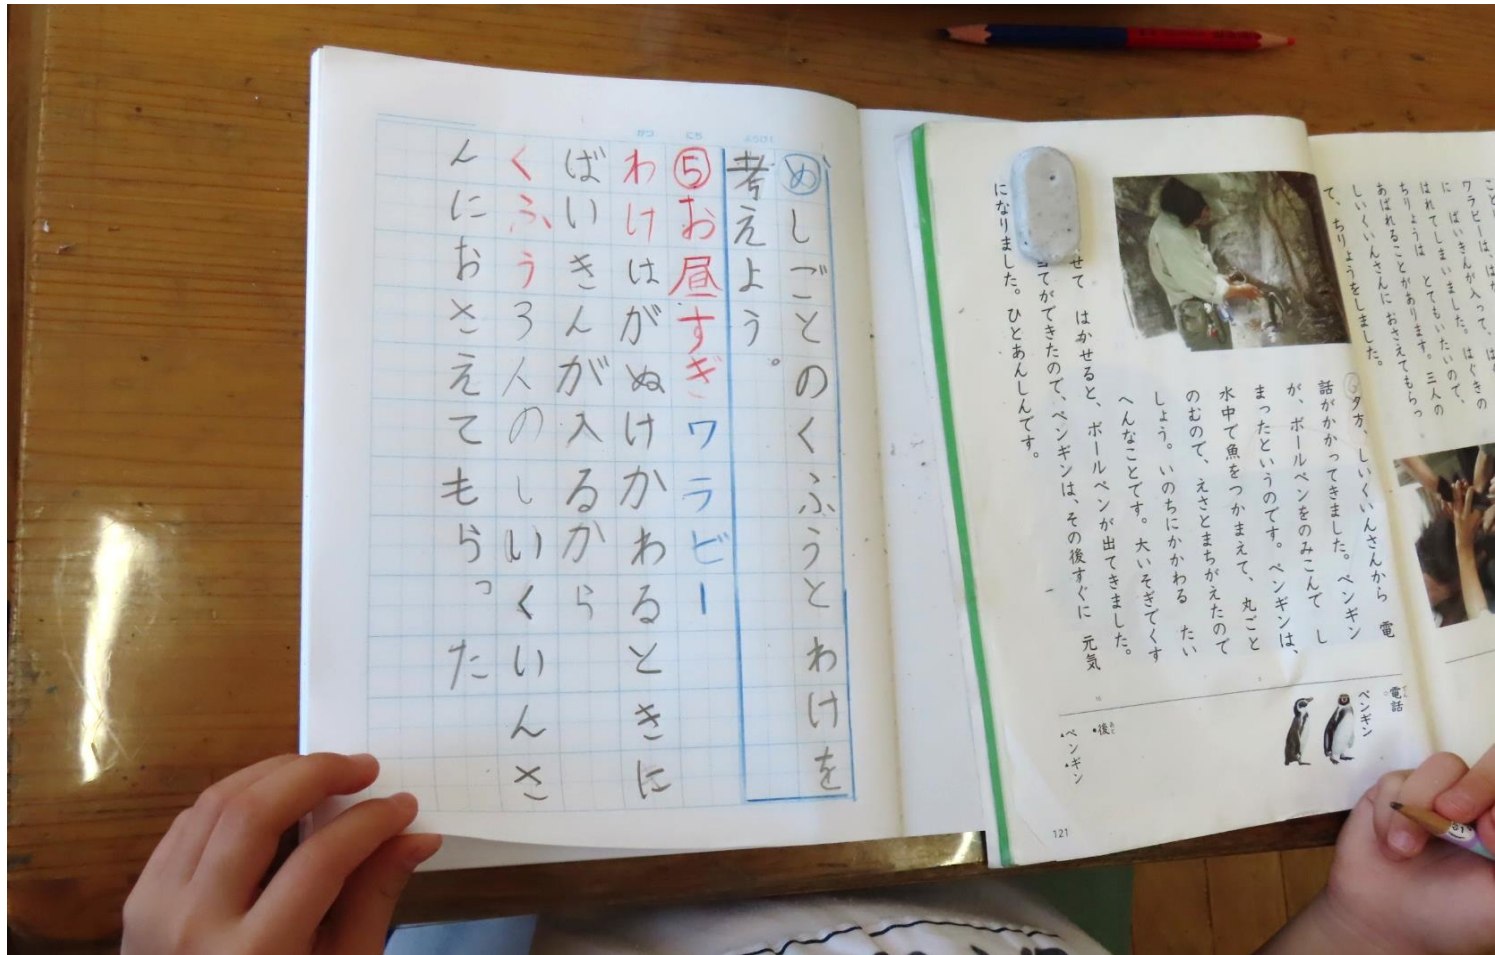 ㋱しごとのくふうとわけを
考えよう。
⑤お昼すぎワラビー
わけはがぬけかわるときに
ばいきんが入るから
くふう3人のしいくいんさ
んにおさえてもらった
ワラビーは、
に ばいきんが入って、
はれてしまいました。はぐきの
ちりょうは とてもいたいので、
あばれることがあります。三人の
しいくいんさんに おさえてもらっ
て、ちりょうをしました。
夕方、しいくいんさんから 電
話がかかってきました。ペンギン
が、ボールペンをのみこんで し
まったというのです。ペンギンは、
水中で魚をつかまえて、丸ごと
のむので、えさとまちがえたので
しょう。いのちにかかわる たい
へんなことです。大いそぎでくす
せて はかせると、ボールペンが出てきました。
当てができたので、ペンギンは、その後すぐに 元気
になりました。ひとあんしんです。
電話
ペンギン
後
ペンギン
121